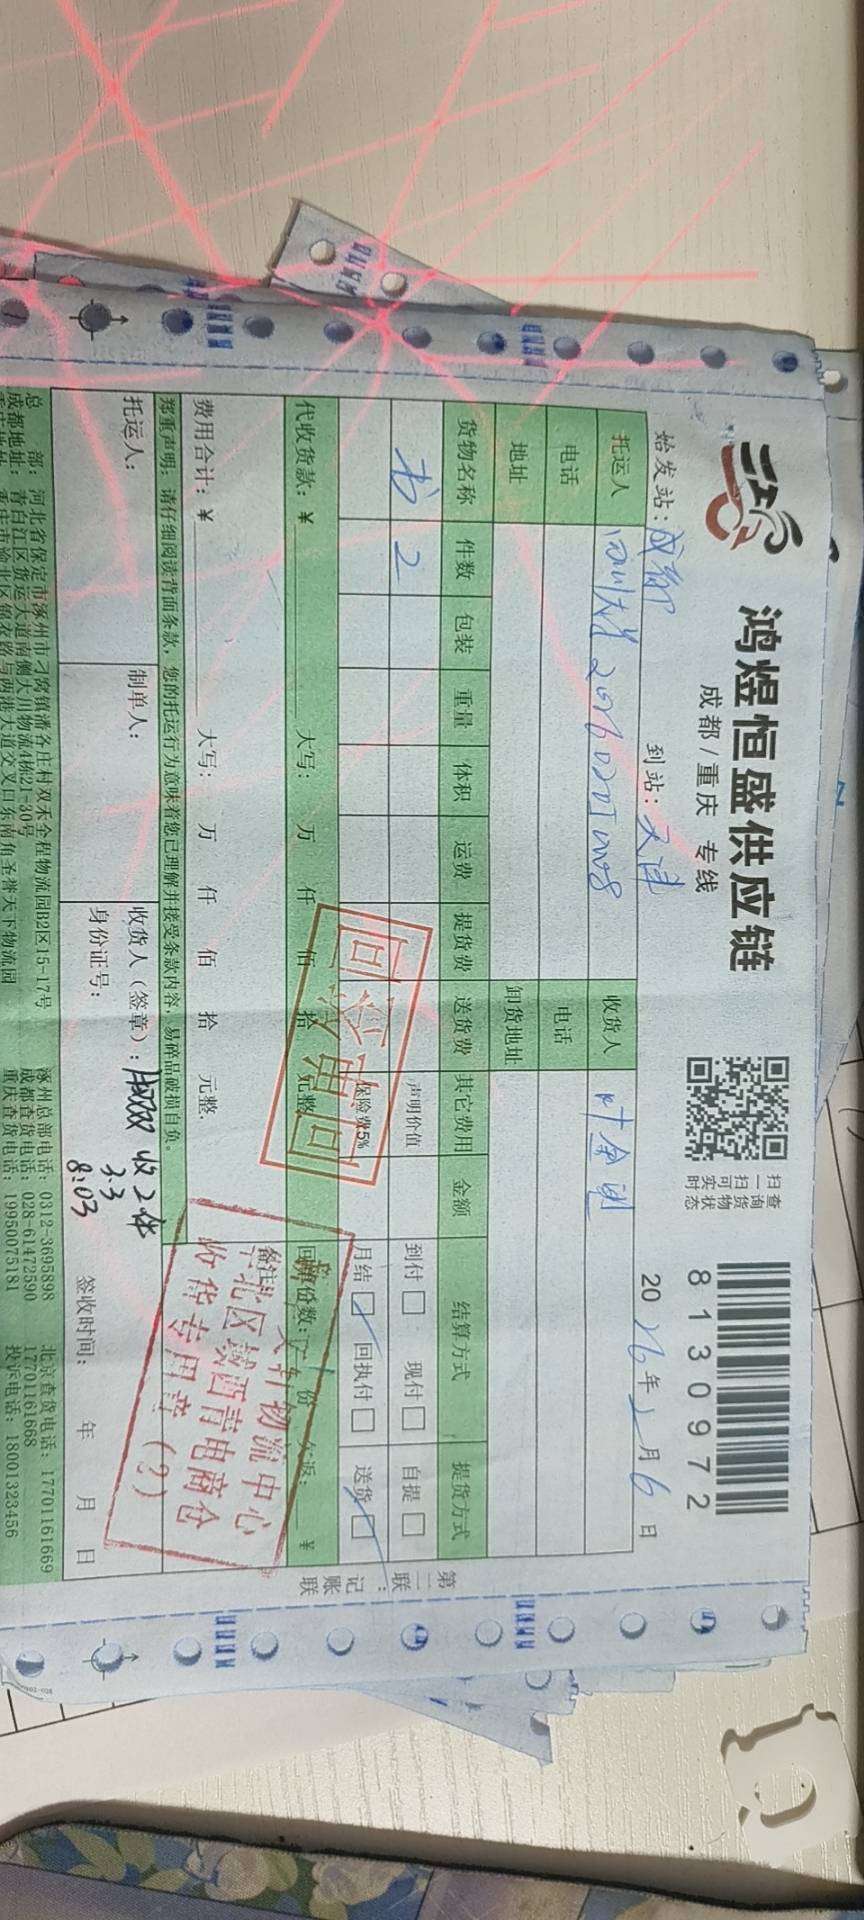 鸿煜恒盛供应链
成都/重庆 专线
扫一扫
查询货物
可实时状态
8130972
始发站：成都 到站：天津 2026年2月6日
托运人 收货人 叶金
电话 电话
地址 卸货地址
货物名称 件数 包装 重量 体积 运费 提货费 送货费 其它费用 金额 结算方式 提货方式
书 2 声明价值 到付 现付 自提
保险费5% 月结 回执付 送货
代收货款：¥ 大写： 万 仟 佰 拾 元整 份数： 份 返： ¥
费用合计：¥ 大写： 万 仟 佰 拾 元整. 备注
郑重声明：请仔细阅读背面条款，您的托运行为意味着您已理解并接受条款内容，易碎品破损自负。
托运人： 制单人： 收货人（签章）： 收2件
3.3
8:03
身份证号： 签收时间： 年 月 日
总 部：河北省保定市涿州市刁窝镇潘各庄村双禾全程物流园B2区15-17号 涿州总部电话：0312-3695898 北京查货电话：17701161669
成都地址：青白江区货运大道南侧大川物流4栋21-30号 成都查货电话：028-61472590 17701161668
重庆查货电话：19950075181 投诉电话：18001323456
第二联：记账联
回单
轩物流中心
华北区域西青电商仓
收货专用章（2）